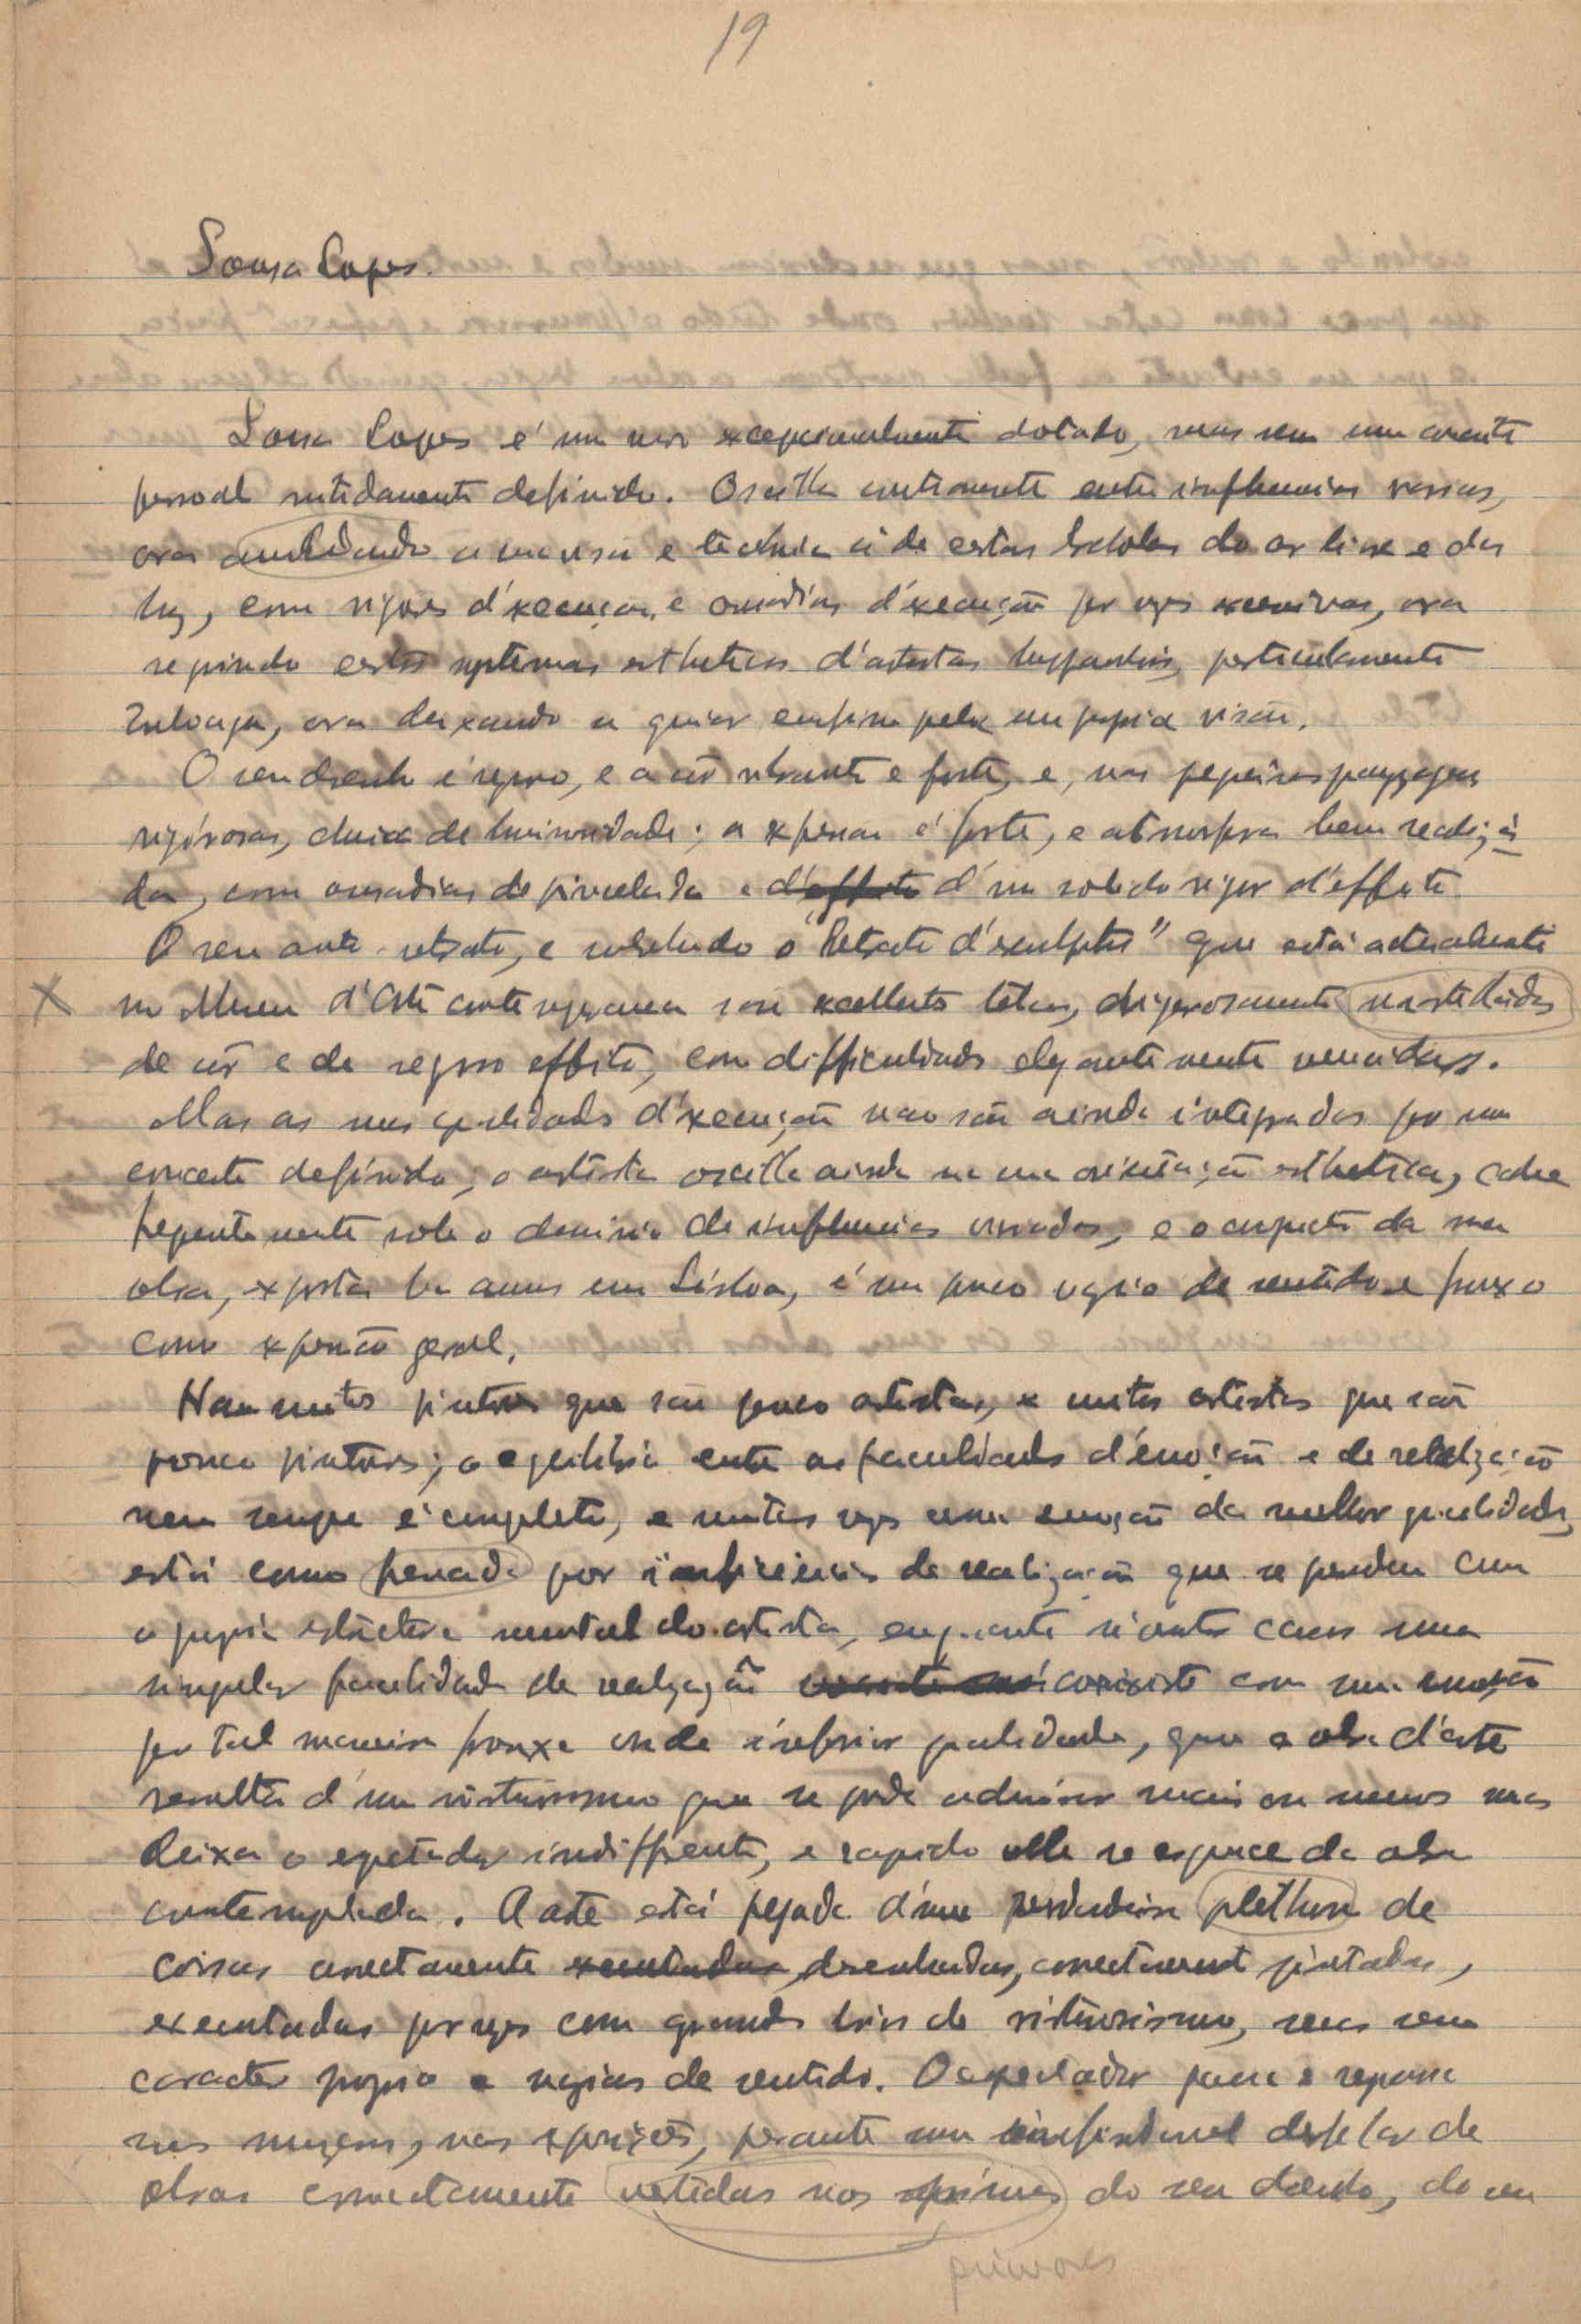 19
Sousa Lopes.
Sousa Lopes é um excepcionalmente dotado, mas sem um
pessoal nitidamente definido. Oscilla entre influencias varias,
ora a e technica de certas do ar livre e da
luz, com vigores d'execução, e ousadias d'execução por vezes excessivas, ora
seguindo certos systemas estheticos d'artistas particularmente
Zuloaga, ora deixando se guiar emfim pela sua propria visão.
O seu desenho é seguro, e a côr vibrante e forte, e, nas pequenas paysagens
vigorosas, cheia de luminosidade; a é forte, e atmosfera bem realiza
da, com ousadias de pincelada e d'effeito d'um solido vigor d'effeito
O seu auto-retrato, e sobretudo o "Retrato d'esculptor" que está actualmente
X no Museu d'Arte contemporanea são excellentes telas,
de côr e de seguro effeito, com difficuldades elegantemente vencidas.
Mas as suas qualidades d'execução não são ainda integradas por um
definido; o artista oscilla ainda na sua orientação esthetica,
frequentemente sob o dominio de influencias variadas, e o aspecto da sua
obra, exposta ha annos em Lisboa, é um pouco vazio de sentido e frouxo
como expressão geral.
Ha muitos pintores que são pouco artistas, e muitos artistas que são
pouco pintores; o equilibrio entre as faculdades d'emoção e de realização
nem sempre é completo, e muitas vezes uma emoção da melhor qualidade,
está como por insuficiencias de realização que se prendem com
a propria mental do artista, enquanto n'outros casos uma
singular faculdade de realização coexiste com uma emoção
por tal maneira frouxa ou de inferior qualidade, que a obra d'arte
resulta d'um virtuosismo que se pode admirar mais ou menos mas
deixa o espectador indifferente, e rapido elle se esquece da obra
contemplada. A arte está pejada d'uma verdadeira plethora de
coisas correctamente executadas, desenhadas, correctamente pintadas,
executadas por vezes com grande de virtuosismo, mas sem
caracter proprio e vazias de sentido. O espectador passa e repassa
nos museus, nas exposições, perante um infindavel desfilar de
obras correctamente vestidas nos primores do seu desenho, do seu
primores